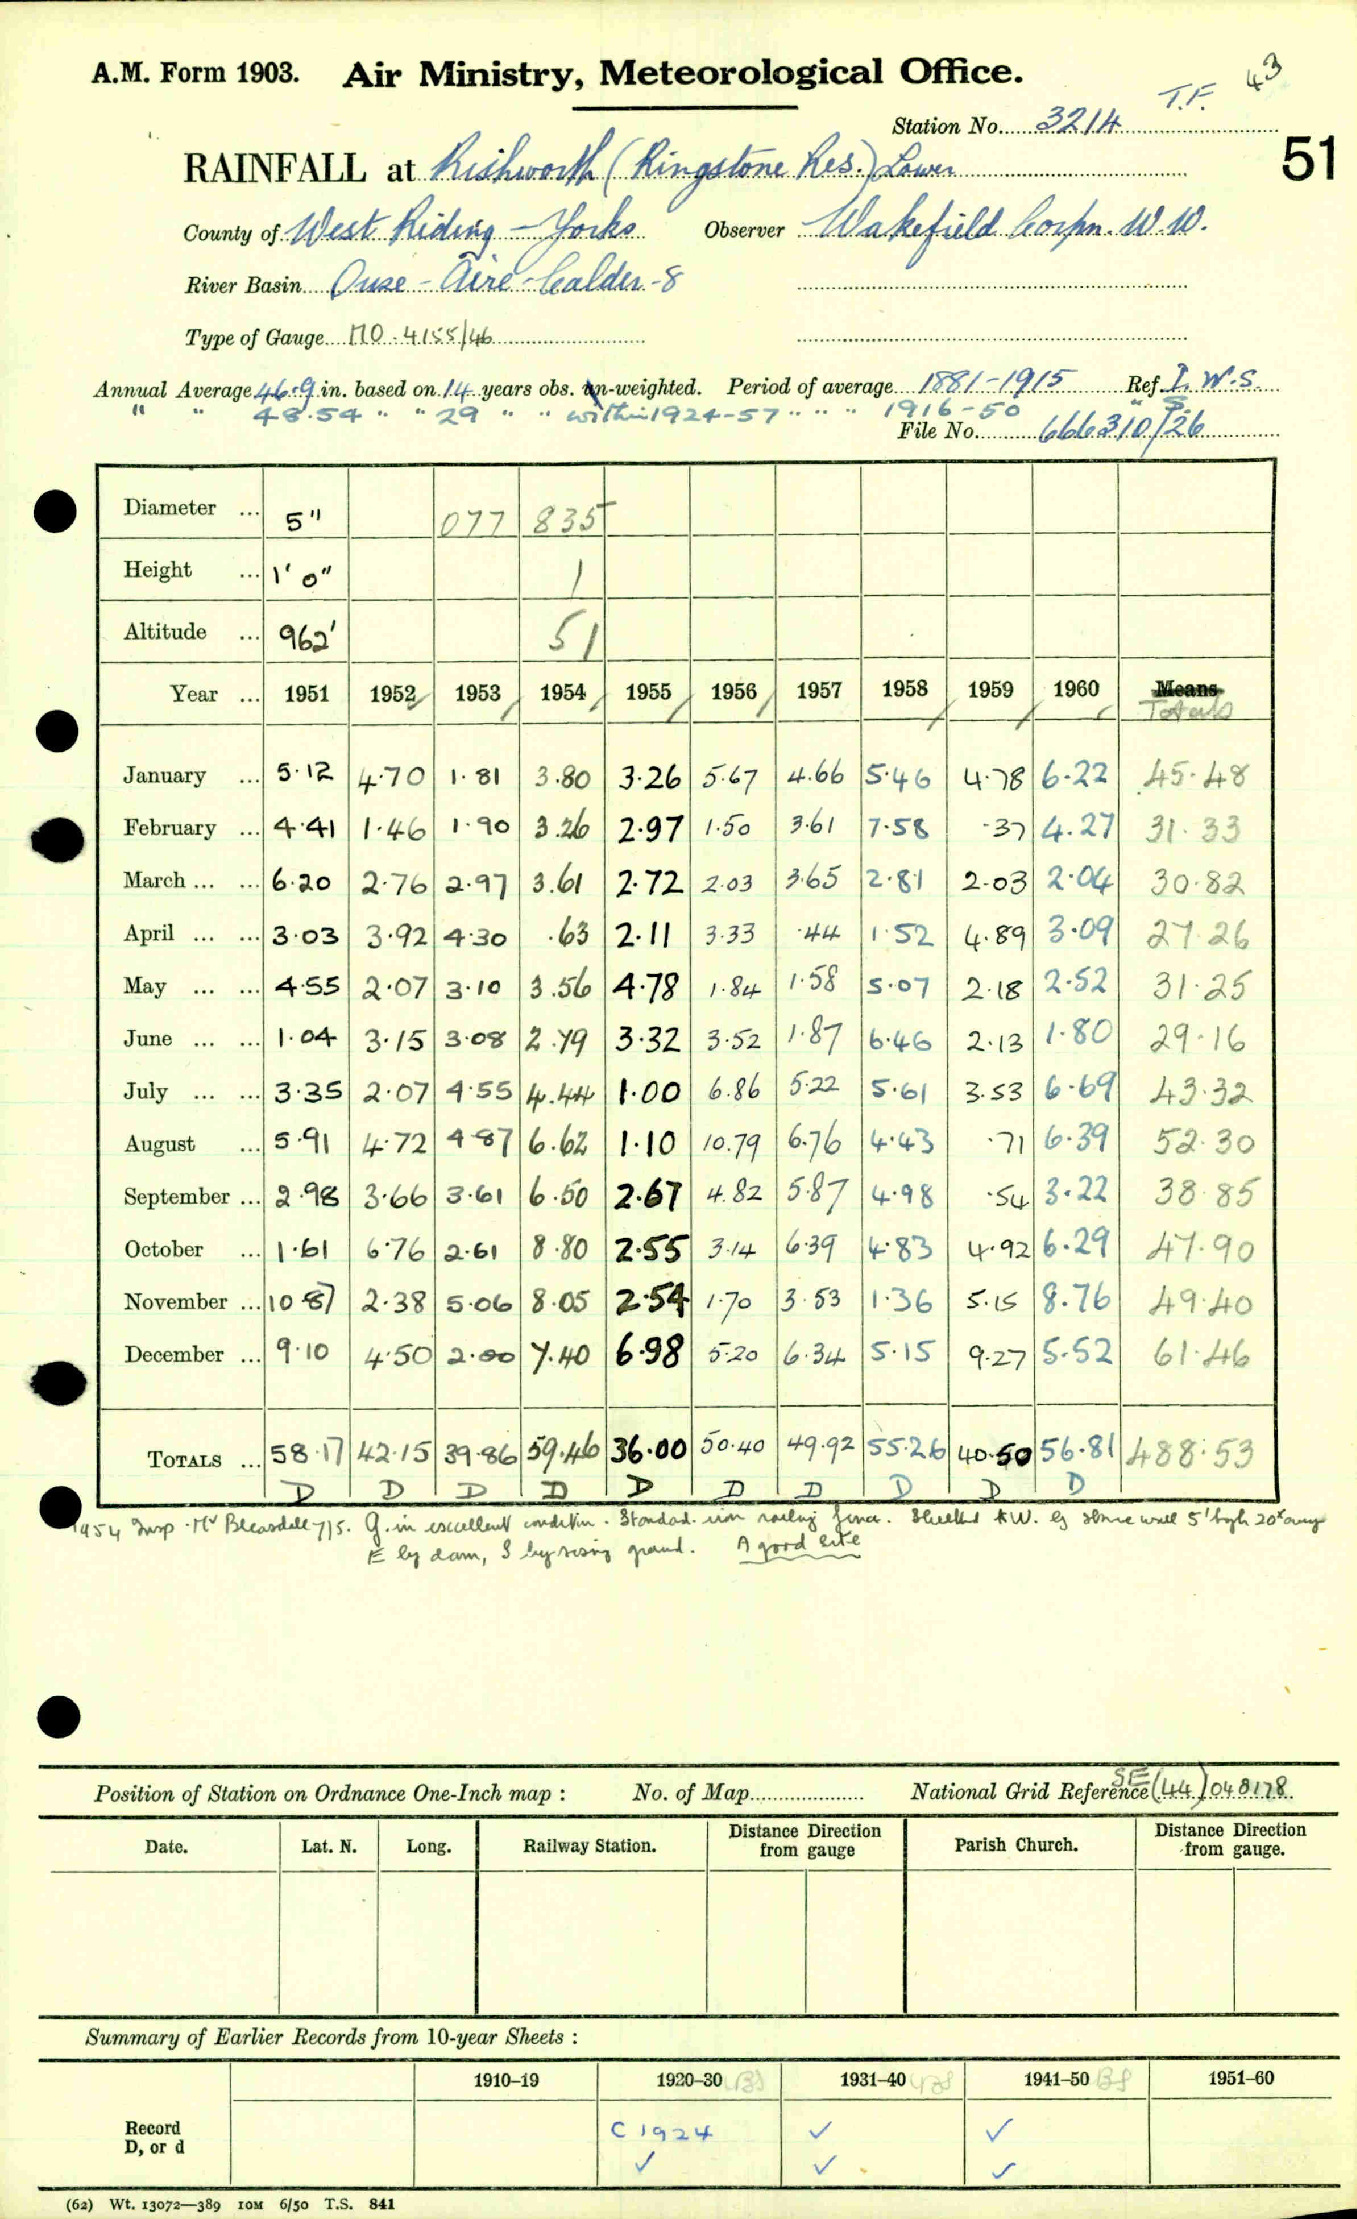 A.M. Form 1903. Air Ministry, Meteorological Office. 43
T.F.
Station No. 3214
51
RAINFALL at Rishworth (Ringstone Res.) Lower
County of West Riding - Yorks Observer Wakefield Corpn. W.W.
River Basin Ouse - Aire - Calder - 8
Type of Gauge MO. 4155/46
Annual Average 46.9 in. based on 14 years obs. un-weighted. Period of average 1881-1915 Ref. I.W.S.
" " 48.54 " " 29 " " within 1924-57 " " " 1916-50 " S.
File No. 666310/26
Diameter ... 5" 077 835
Height ... 1' 0" 1
Altitude ... 962' 51
Year ... 1951 1952 1953 1954 1955 1956 1957 1958 1959 1960 Means
Totals
January ... 5.12 4.70 1.81 3.80 3.26 5.67 4.66 5.46 4.78 6.22 45.48
February ... 4.41 1.46 1.90 3.26 2.97 1.50 3.61 7.58 .37 4.27 31.33
March ... ... 6.20 2.76 2.97 3.61 2.72 2.03 3.65 2.81 2.03 2.04 30.82
April ... ... 3.03 3.92 4.30 .63 2.11 3.33 .44 1.52 4.89 3.09 27.26
May ... ... 4.55 2.07 3.10 3.56 4.78 1.84 1.58 5.07 2.18 2.52 31.25
June ... ... 1.04 3.15 3.08 2.79 3.32 3.52 1.87 6.46 2.13 1.80 29.16
July ... ... 3.35 2.07 4.55 4.44 1.00 6.86 5.22 5.61 3.53 6.69 43.32
August ... 5.91 4.72 4.87 6.62 1.10 10.79 6.76 4.43 .71 6.39 52.30
September ... 2.98 3.66 3.61 6.50 2.67 4.82 5.87 4.98 .54 3.22 38.85
October ... 1.61 6.76 2.61 8.80 2.55 3.14 6.39 4.83 4.92 6.29 47.90
November ... 10.87 2.38 5.06 8.05 2.54 1.70 3.53 1.36 5.15 8.76 49.40
December ... 9.10 4.50 2.00 7.40 6.98 5.20 6.34 5.15 9.27 5.52 61.46
TOTALS ... 58.17 42.15 39.86 59.46 36.00 50.40 49.92 55.26 40.50 56.81 488.53
D D D D D D D D D D
1954 Insp. Mr Bleasdale 7/5. G. in excellent condition. Standard iron railing fence. Sheltered W. by stone wall 5' high 20' away
E by dam, S by rising ground. A good site
Position of Station on Ordnance One-Inch map : No. of Map National Grid Reference SE(44)048178
Date. Lat. N. Long. Railway Station. Distance Direction from gauge Parish Church. Distance Direction from gauge.
Summary of Earlier Records from 10-year Sheets :
1910–19 1920–30 1931–40 1941–50 1951–60
Record C 1924 ✓ ✓
D, or d ✓ ✓ ✓
(62) Wt. 13072—389 10M 6/50 T.S. 841